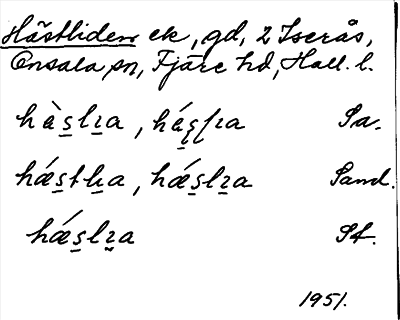 Hästliden ek, gd, 2 Iserås,
Onsala sn, Fjäre hd, Hall. l.
hàs̱lɪ̱a, hás̱lɪa Sa.
hǽs̱tlɪ̱a, hǽs̱lɪ̱a Sand.
hǽs̱lɪ̱a St.
1951.